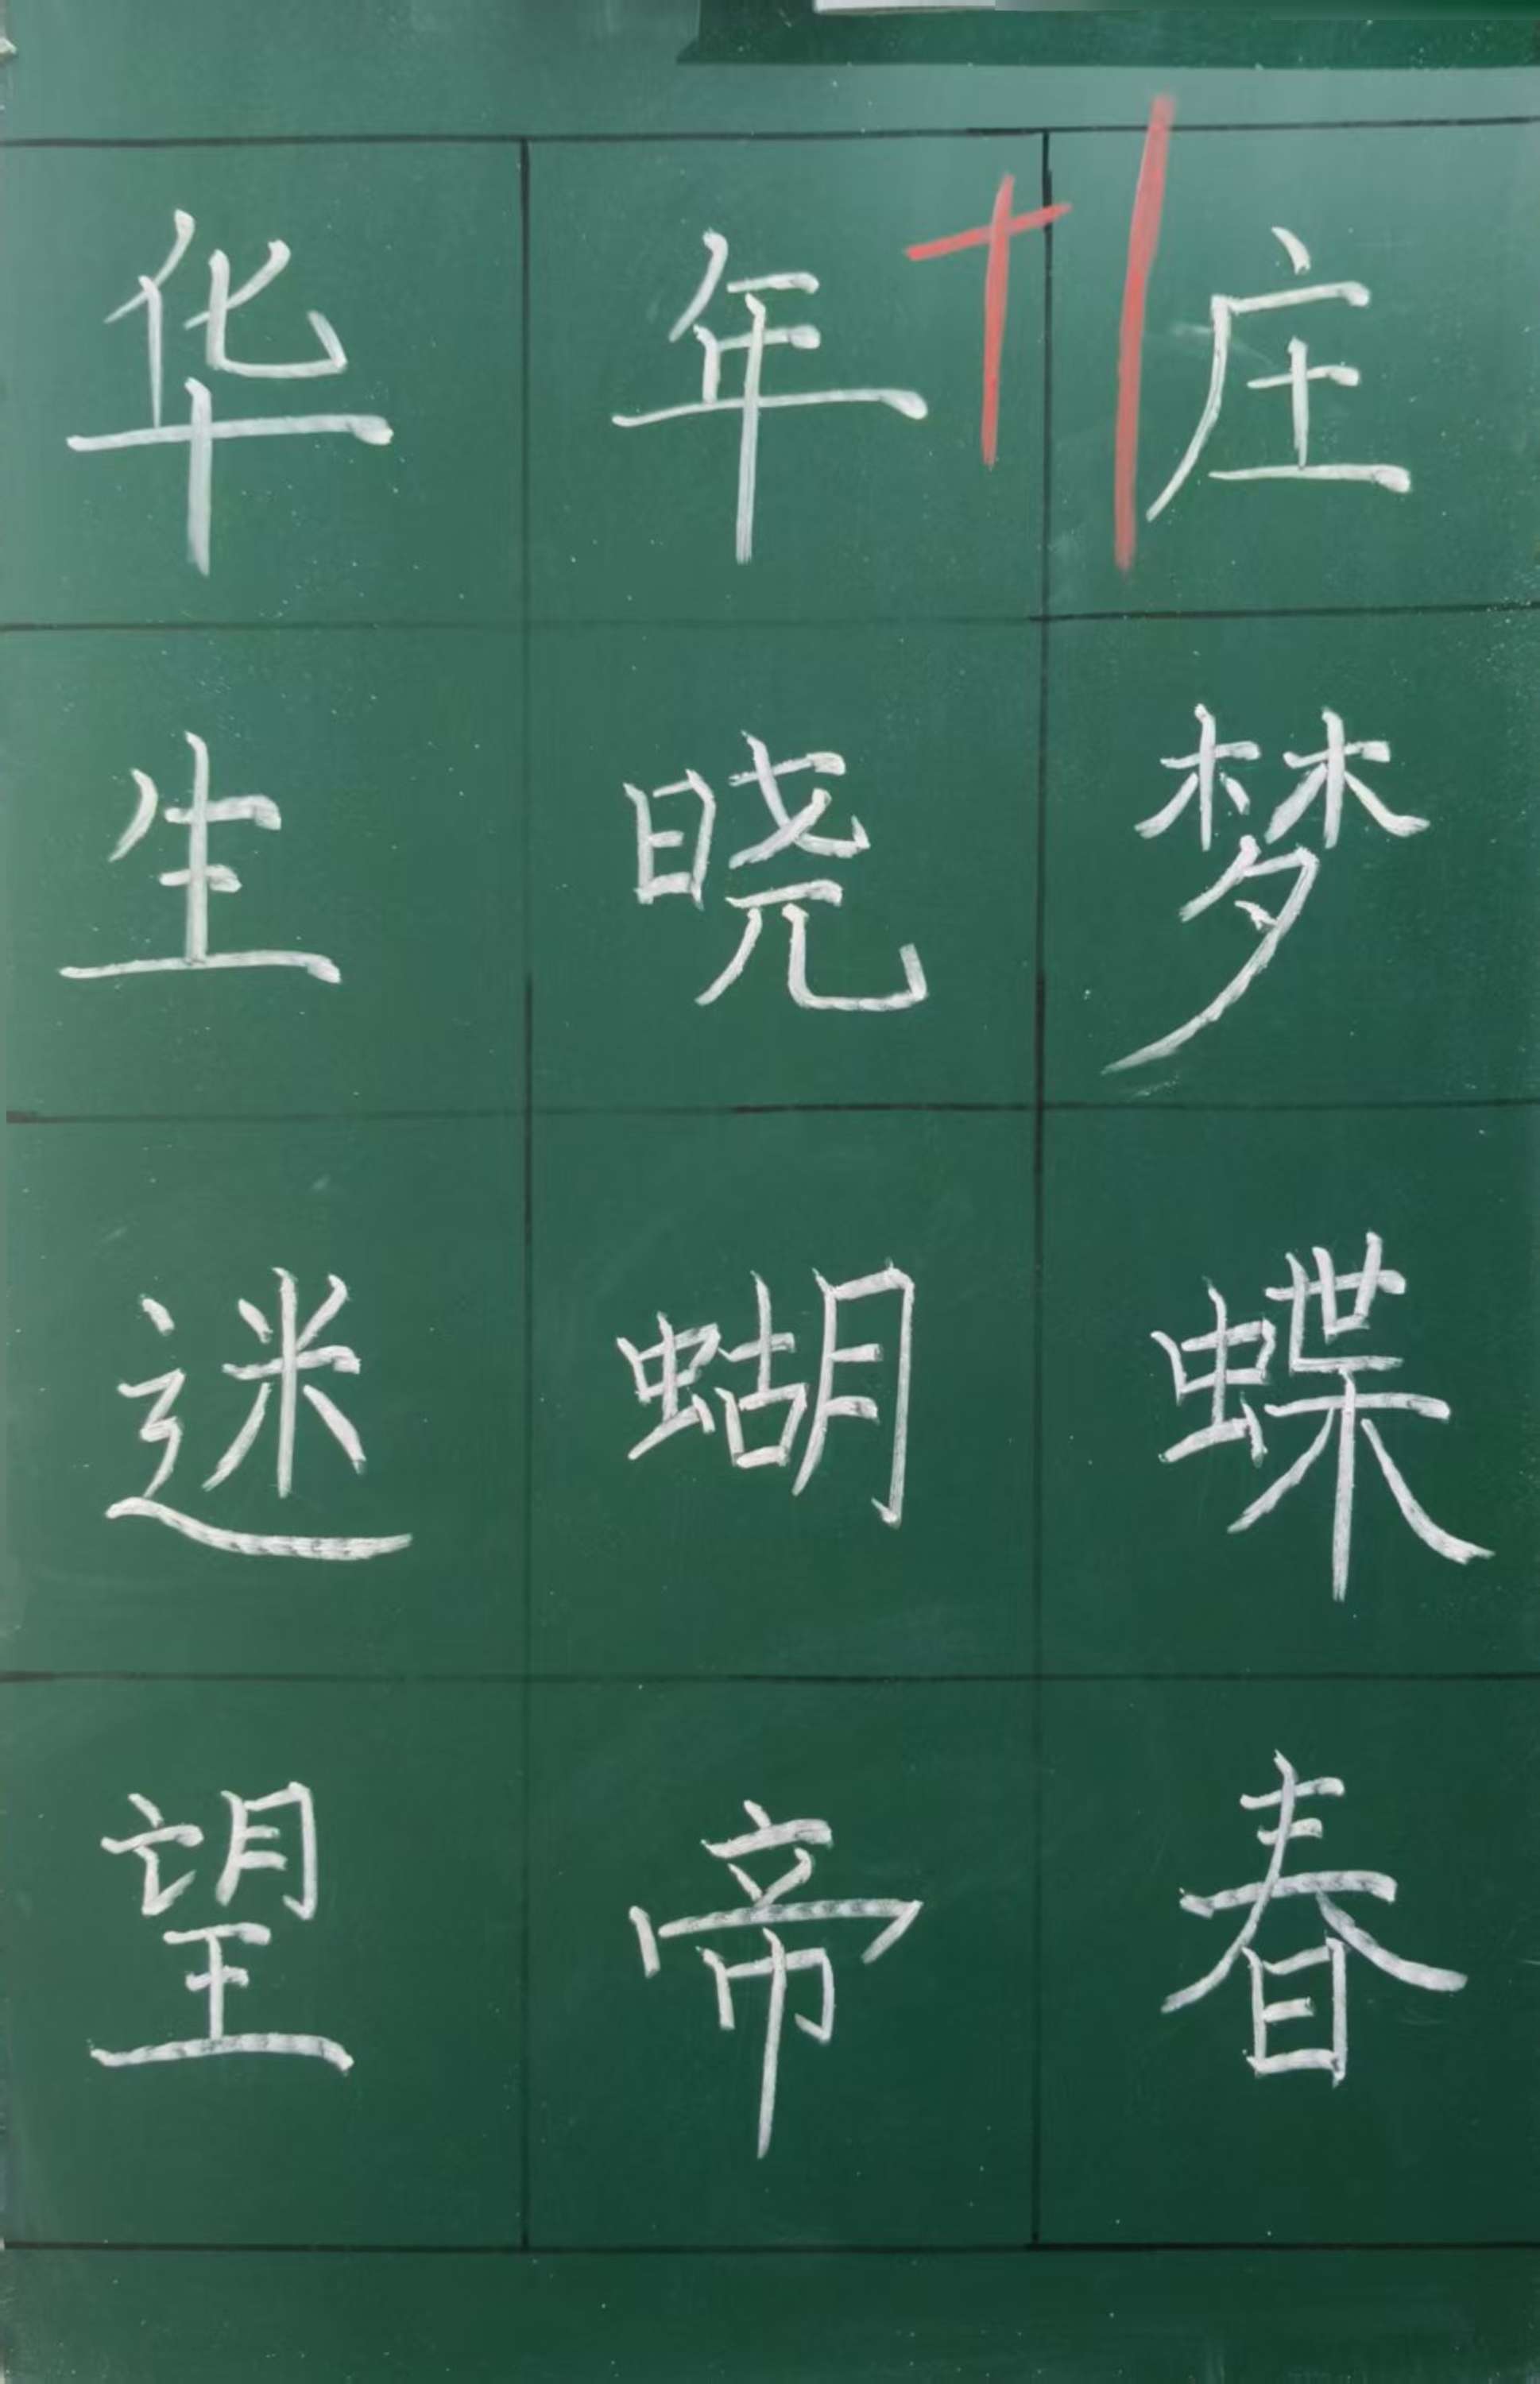 华年庄
生晓梦
迷蝴蝶
望帝春